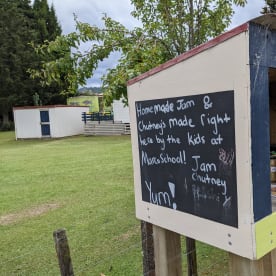 Homemade Jam &
Chutneys made right
here by the kids at
School! Jam
Chutney
Yum!